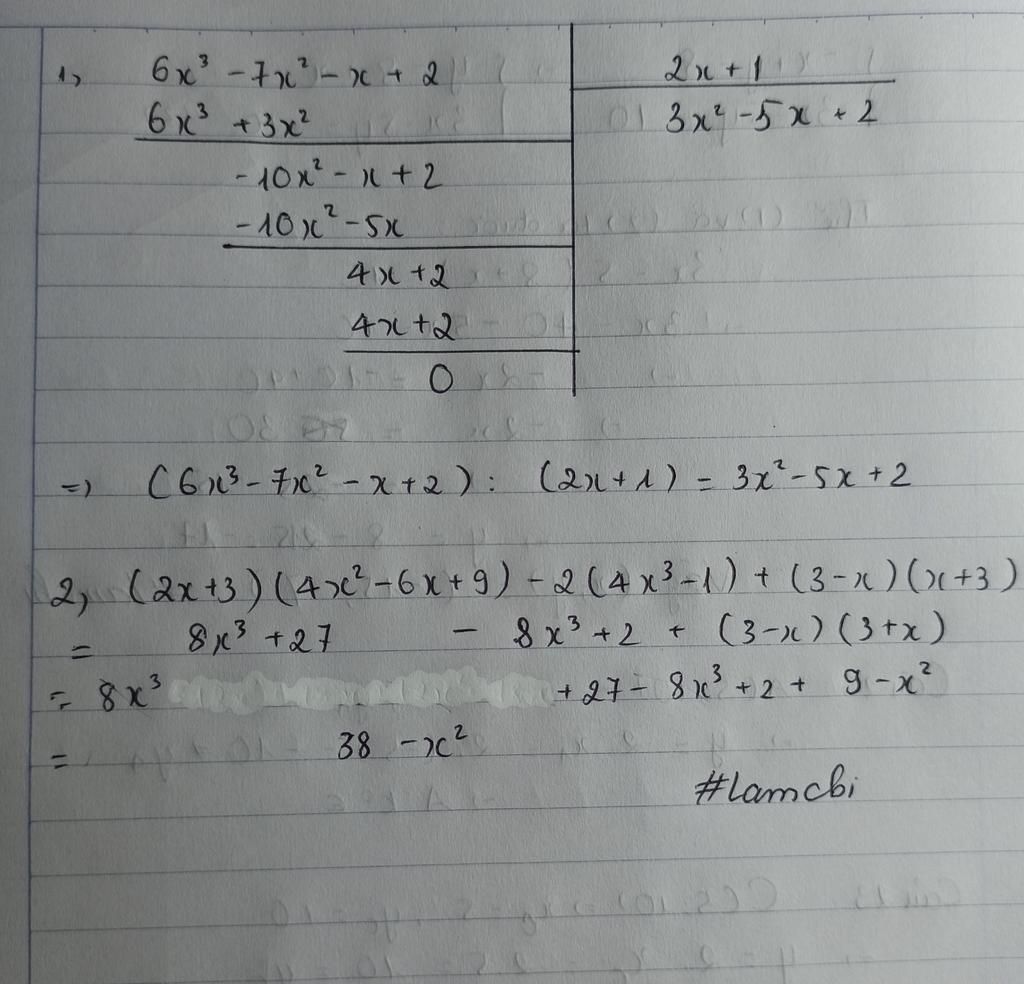 1, 6x³ - 7x² - x + 2 2x + 1
6x³ + 3x² 3x² - 5x + 2
-10x² - x + 2
-10x² - 5x
4x + 2
4x + 2
0
=> (6x³ - 7x² - x + 2) : (2x + 1) = 3x² - 5x + 2
2, (2x+3)(4x² - 6x + 9) - 2(4x³ - 1) + (3-x)(x+3)
= 8x³ + 27 - 8x³ + 2 + (3-x)(3+x)
= 8x³ + 27 - 8x³ + 2 + 9 - x²
= 38 - x²
#lamchi